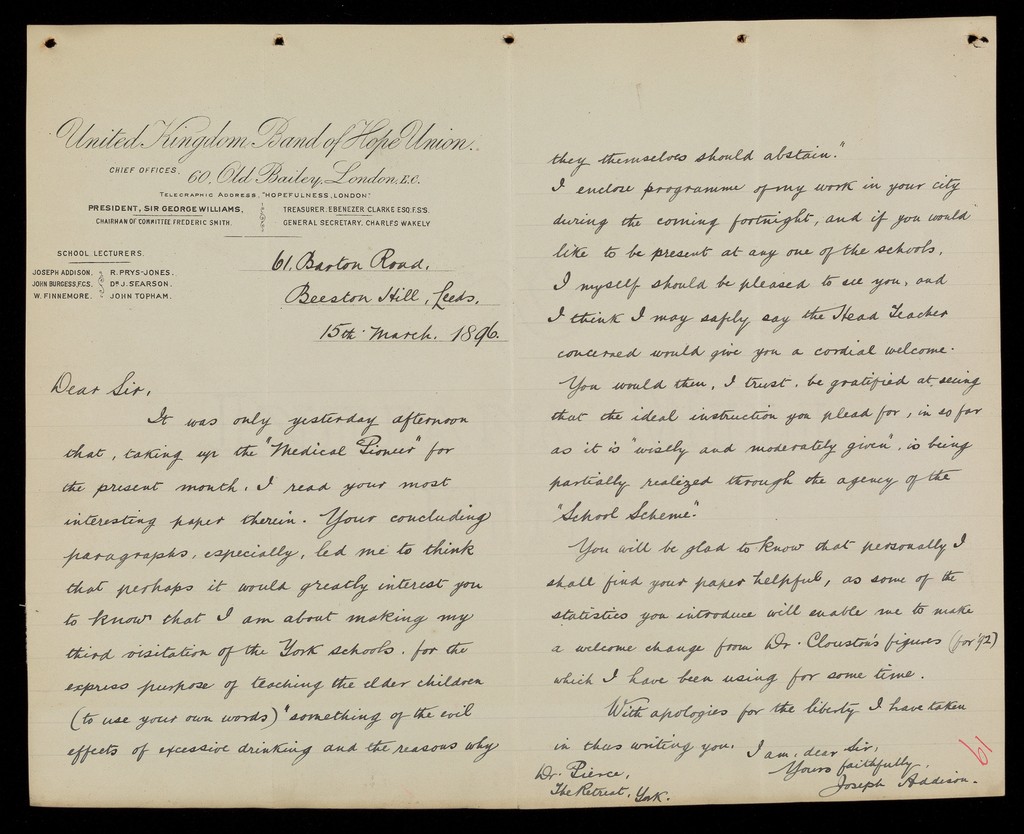 United Kingdom Band of Hope Union.
CHIEF OFFICES, 60, Old Bailey, London, E.C.
TELEGRAPHIC ADDRESS, "HOPEFULNESS, LONDON"
PRESIDENT, SIR GEORGE WILLIAMS,
CHAIRMAN OF COMMITTEE FREDERIC SMITH.
TREASURER, EBENEZER CLARKE ESQ. F.S.S.
GENERAL SECRETARY, CHARLES WAKELY
SCHOOL LECTURERS.
JOSEPH ADDISON.
JOHN BURGESS, F.C.S.
W. FINNEMORE.
R. PRYS-JONES.
DR J. SEARSON.
JOHN TOPHAM.
61, Barton Road,
Beeston Hill, Leeds,
15th March. 1896.
Dear Sir,
It was only yesterday afternoon
that, taking up the "Medical Pioneer" for
the present month, I read your most
interesting paper therein. Your concluding
paragraphs, especially, led me to think
that perhaps it would greatly interest you
to know that I am about making my
third visitation of the York schools, for the
express purpose of teaching the elder children
(to use your own words) "something of the evil
effects of excessive drinking and the reasons why
they themselves should abstain."
I enclose programme of my work in your city
during the coming fortnight, and if you would
like to be present at any one of the schools,
I myself should be pleased to see you, and
I think I may safely say the Head Teacher
concerned would give you a cordial welcome.
You would then, I trust, be gratified at seeing
that the ideal instruction you plead for, in so far
as it is "wisely and moderately given", is being
partially realized through the agency of the
"School Scheme".
You will be glad to know that personally I
shall find your paper helpful, as some of the
statistics you introduce will enable me to make
a welcome change from Dr. Clouston's figures (for '92)
which I have been using for some time.
With apologies for the liberty I have taken
in thus writing you,
I am, dear Sir,
Yours faithfully,
Joseph Addison.
Dr. Pierce,
The Retreat, York.
61